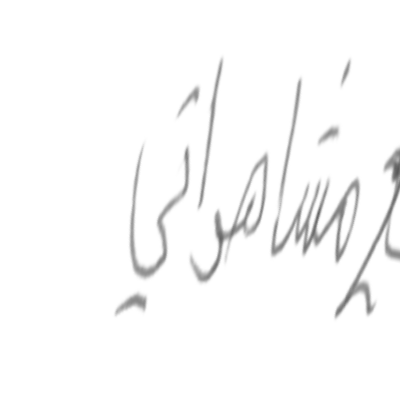 مشاهداتي